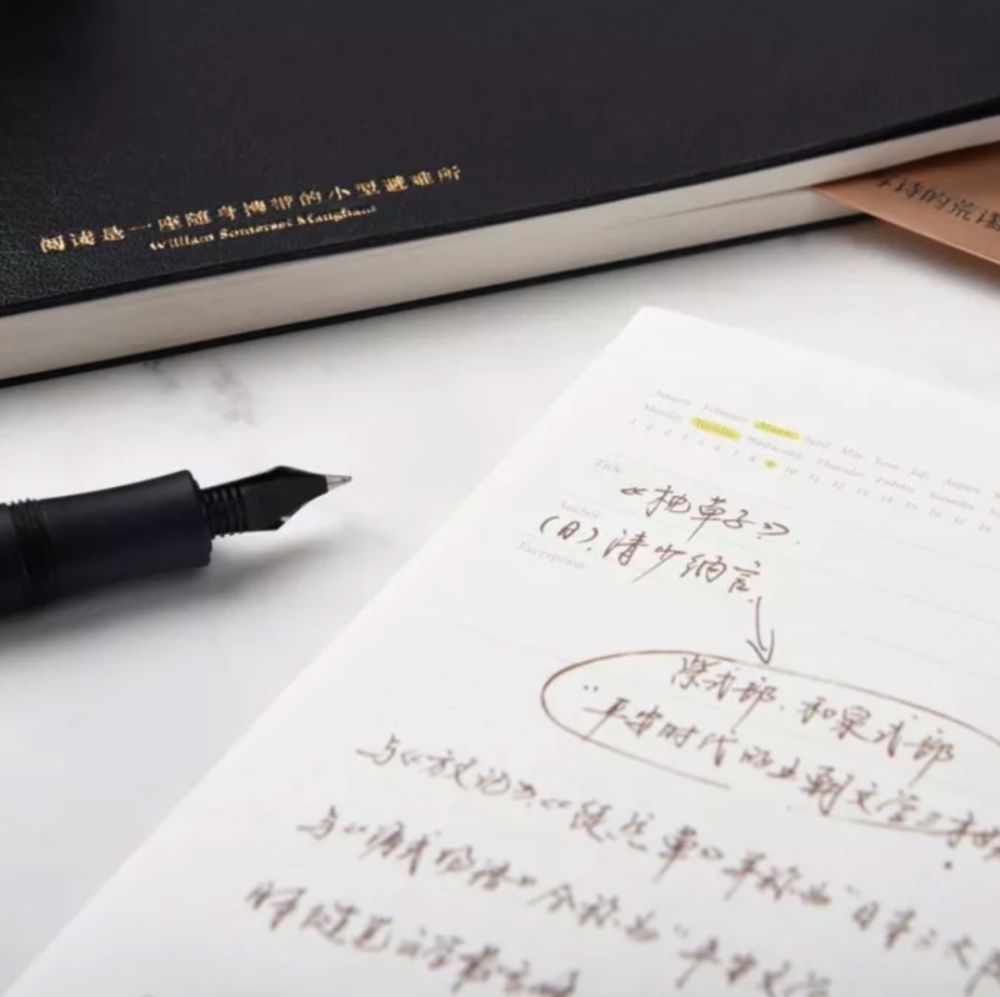 阅读是一座随身携带的小型避难所
William Somerset Maugham
诗的荒谬
January February March April May June July August
Monday Tuesday Wednesday Thursday Friday Saturday
1 2 3 4 5 6 7 8 9 10 11 12 13 14 15 16 17 18
Title
《枕草子》
Author
(日).清少纳言
Excerption
紫式部.和泉式部
"平安时代的王朝文学三才媛
与《方丈记》《徒然草》并称为"日本三大随
与《源氏物语》合称为"平安文学